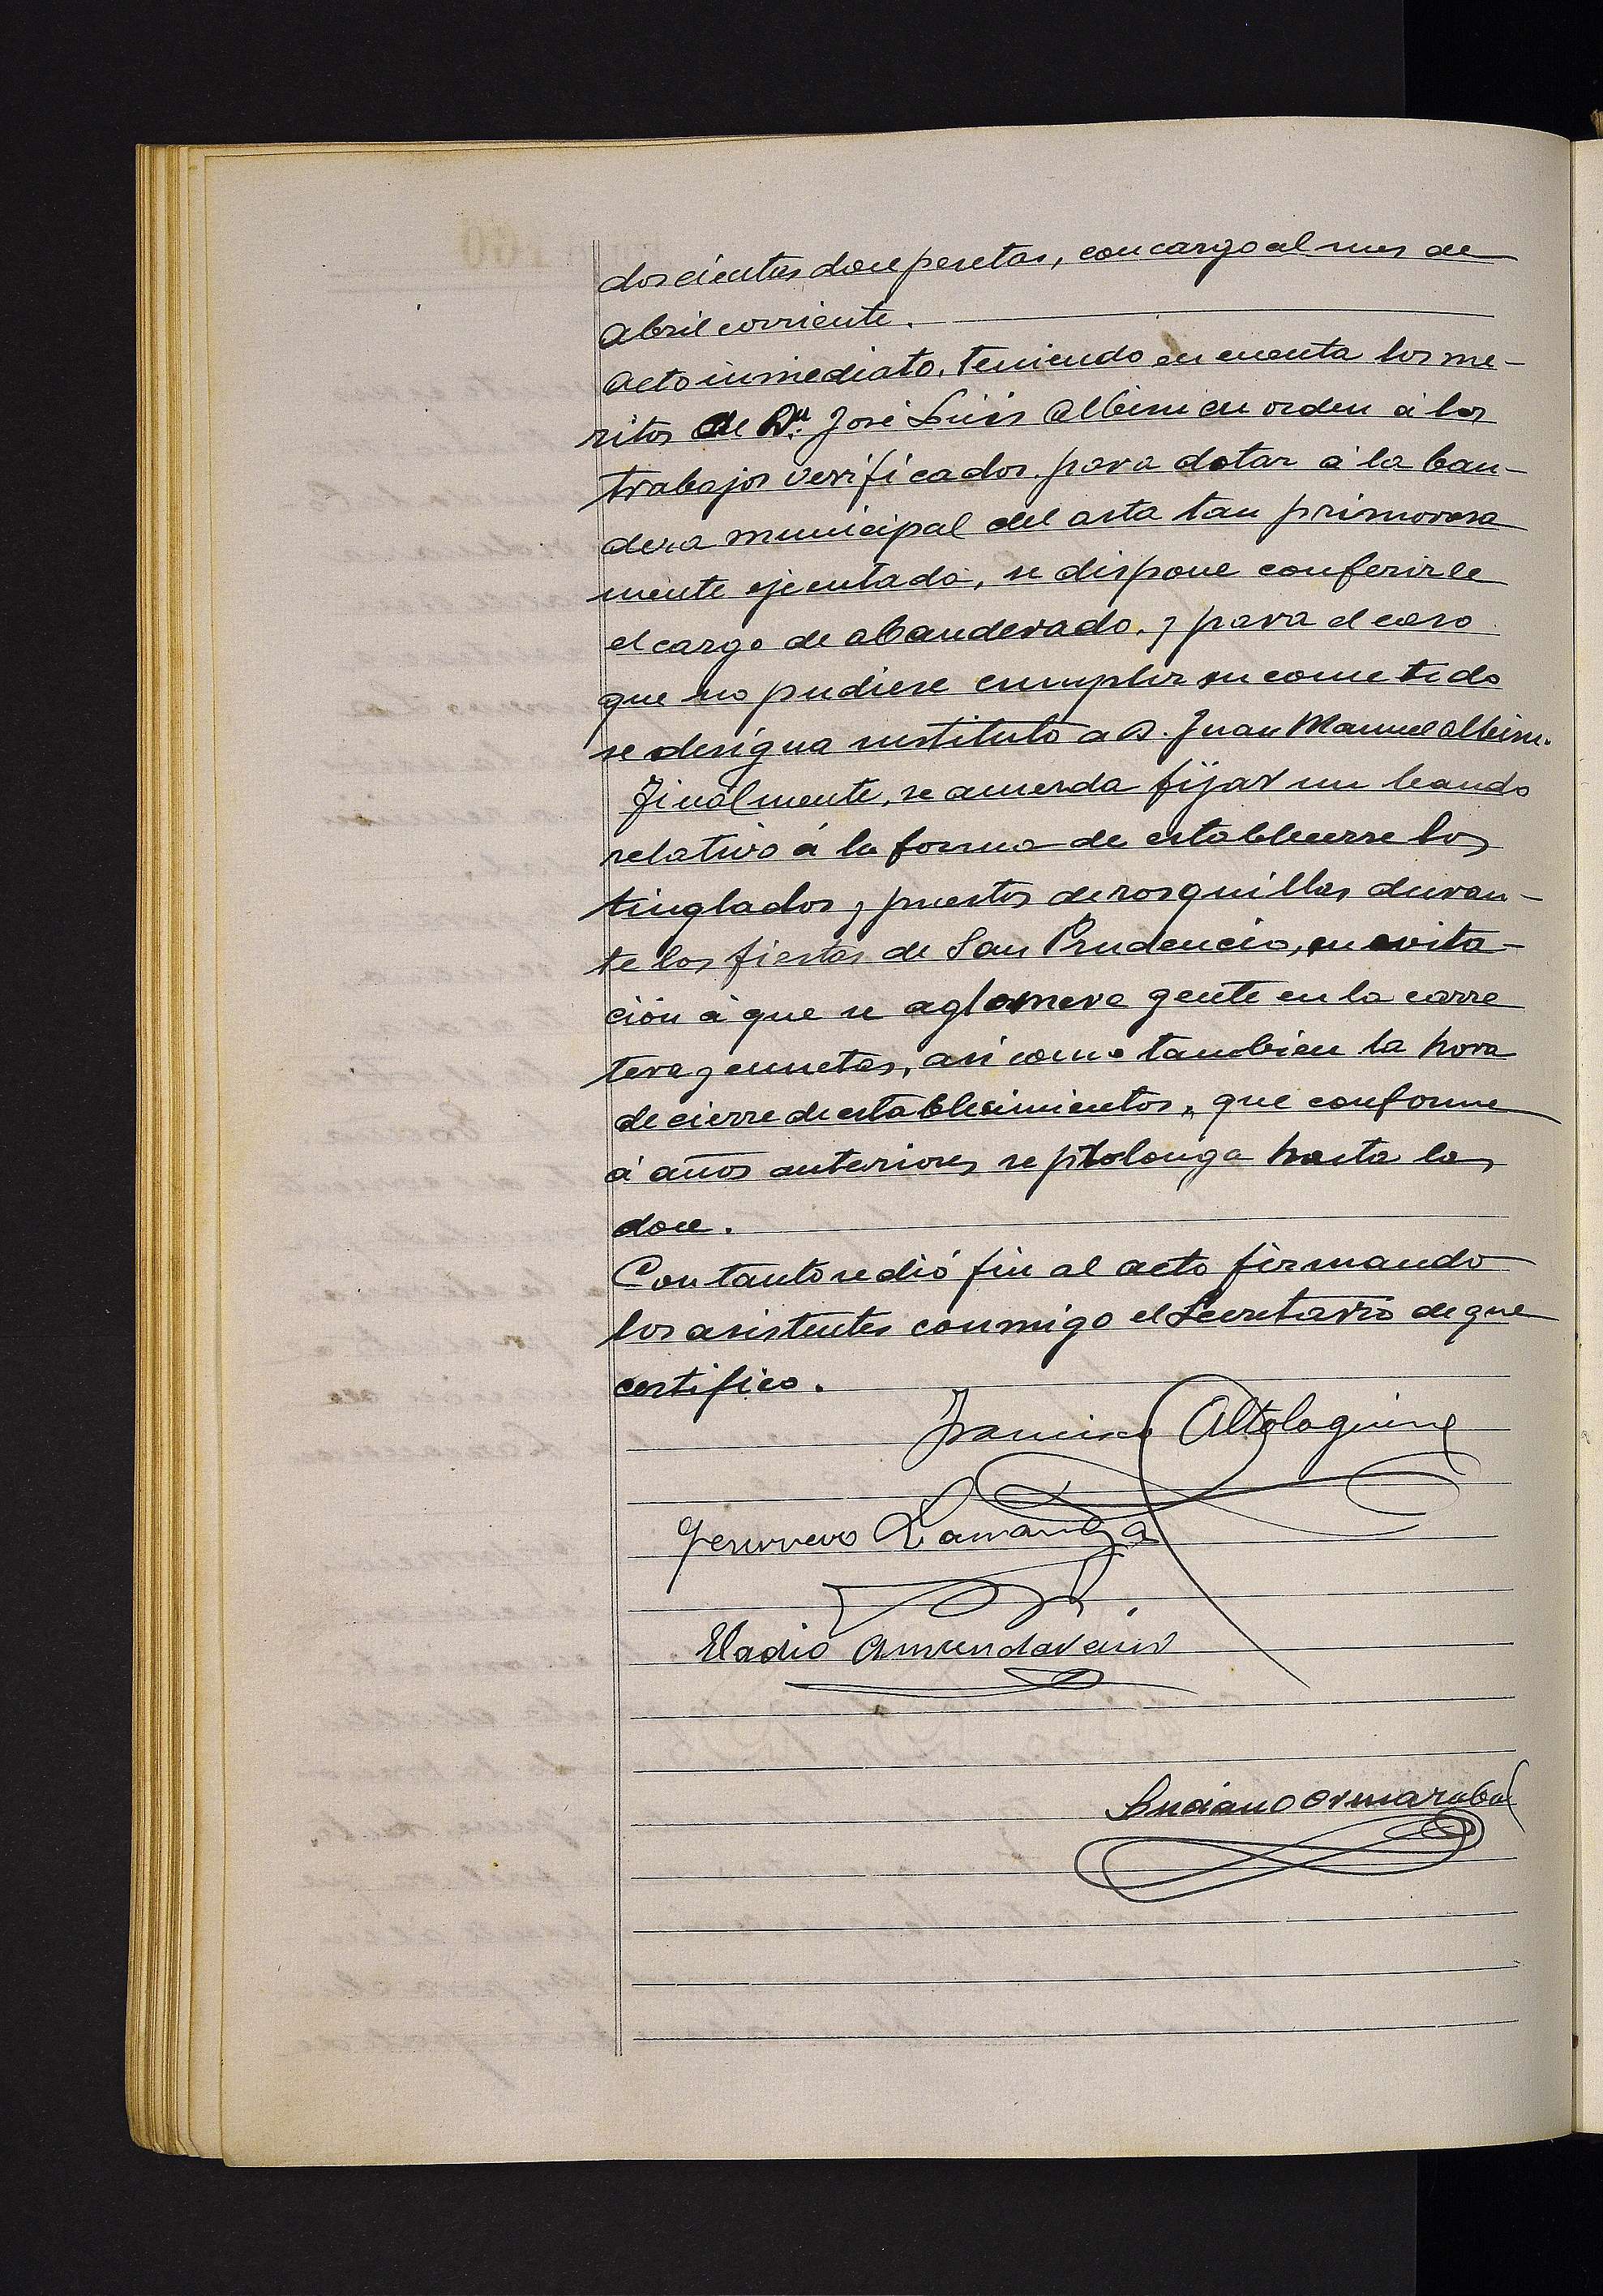 doscientas doce pesetas, con cargo al mes de
Abril corriente.
Acto inmediato, teniendo en cuenta los me-
ritos de Dn. José Luis Albeni en orden á los
trabajos verificados para dotar á la ban-
dera municipal del asta tan primorosa
mente ejecutada, se dispone conferirle
el cargo de abanderado, y para el caso
que no pudiese cumplir su cometido
se designa sustituto a D. Juan Manuel Albeni.
Finalmente, se acuerda fijar un bando
relativo á la forma de establecerse los
tinglados y puestos de rosquillas duran-
te las fiestas de San Prudencio, en evita-
ción á que se aglomere gente en la carre
tera y cunetas, asi como tambien la hora
de cierre de establecimientos, que conforme
á años anteriores se prolonga hasta las
doce.
Con tanto se dió fin al acto firmando
los asistentes conmigo el Secretario de que
certifico.
Francisco Altolaguirre
Lamariga
Eladio Amundarain
Luciano Ormazabal